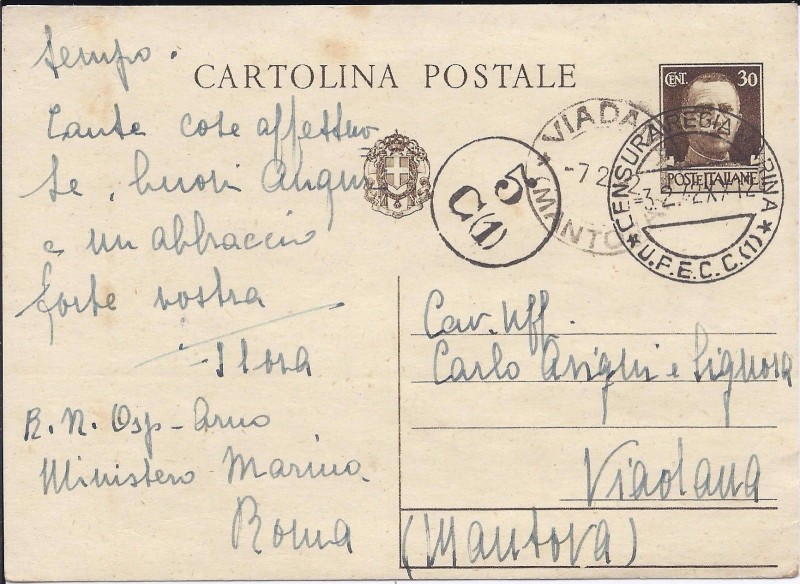 tempo.
Tante cose affettuo
se, buoni Auguri
e un abbraccio
forte vostra
R. N. Osp - Arno
Ministero Marina
Roma
CARTOLINA POSTALE
CENT. 30
POSTE ITALIANE
5
C(1)
VIADA
MANTO
-7.2
CENSURA REGIA MARINA
U.P.E.C.C.(1)
Cav. Uff.
Carlo e Signora
Viadana
(Mantova)